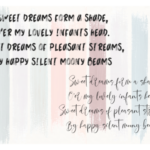 SWEET DREAMS FORM A SHADE,
ER MY LOVELY INFANTS HEAD.
T DREAMS OF PLEASANT STREAMS,
Y HAPPY SILENT MOONY BEAMS
Sweet dreams form a sha
O'er my lovely infants he
Sweet dreams of pleasant st
By happy silent moony bea